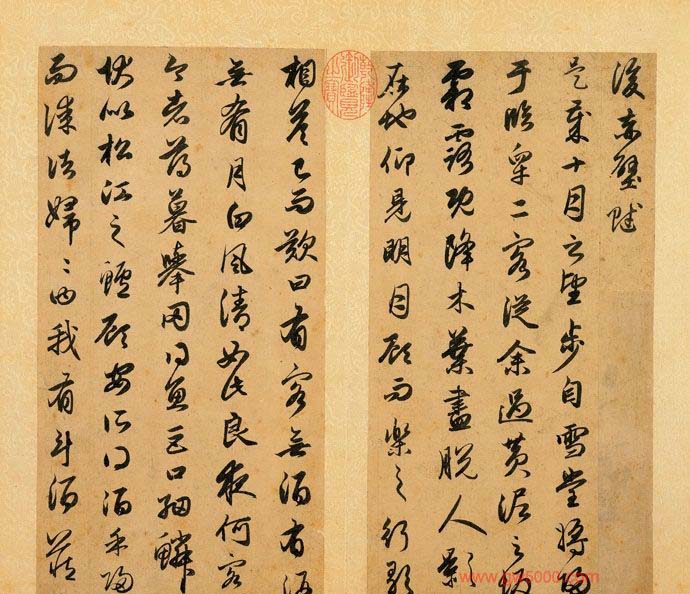 後赤壁賦
是歲十月之望步自雪堂將歸
于臨皋二客從余過黃泥之坂
霜露既降木葉盡脫人影
在地仰見明月顧而樂之行歌
相答已而歎曰有客無酒有酒
無肴月白風清如此良夜何客
今者薄暮舉網得魚巨口細鱗
狀似松江之鱸顧安所得酒乎歸
而謀諸婦〻曰我有斗酒藏
www.gw5000.com